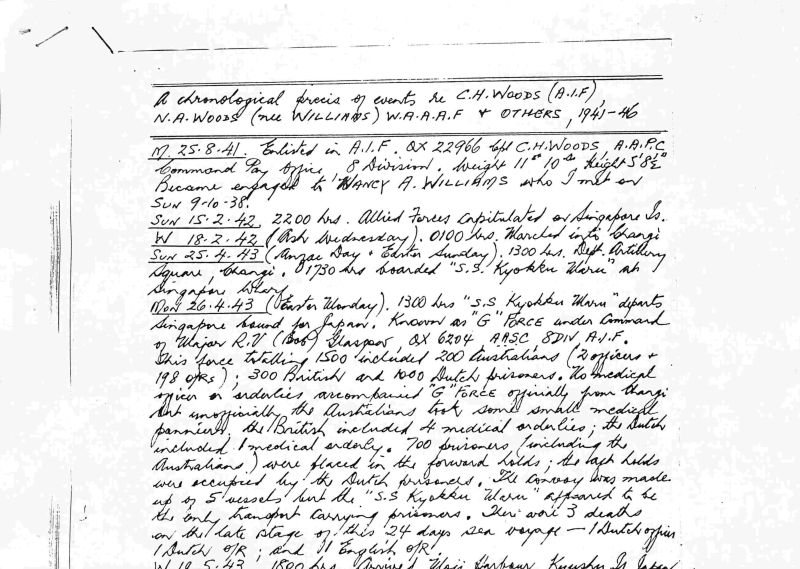 A chronological precis of events re C.H. WOODS (A.I.F),
N.A. WOODS (nee WILLIAMS) W.A.A.A.F & OTHERS, 1941-46
M. 25.8.41. Enlisted in A.I.F. QX 22966 Cpl C.H. WOODS, A.A.P.C
Command Pay Office, 8 Division. Weight 11st 10lb Height 5'8½"
Became engaged to NANCY A. WILLIAMS who I met on
SUN 9-10-38.
SUN 15.2.42 2200 hrs. Allied Forces capitulated on Singapore Is.
W 18.2.42 (Ash Wednesday). 0100 hrs. Marched into Changi
SUN 25.4.43 (Anzac Day & Easter Sunday). 1300 hrs. Dept. Artillery
Square, Changi. 01730 hrs boarded "S.S. Kyokku Maru" at
Singapore Wharf
MON 26.4.43 (Easter Monday). 1300 hrs "S.S Kyokku Maru" departs
Singapore bound for Japan. Known as "G" FORCE under command
of Major R.V (Bob) Glasgow, QX 6204 AASC 8DIV A.I.F.
This force totalling 1500 included 200 Australians (2 officers &
198 O/Rs); 300 British and 1000 Dutch prisoners. No medical
officer or orderlies accompanied "G" FORCE officially from Changi
but unofficially the Australians took some small medical
panniers, the British included 4 medical orderlies; the Dutch
included 1 medical orderly. 700 prisoners (including the
Australians) were placed in the forward holds; the aft holds
were occupied by the Dutch prisoners. The convoy was made
up of 5 vessels but the "S.S Kyokku Maru" appeared to be
the only transport carrying prisoners. There were 3 deaths
on the late stage of this 24 days sea voyage — 1 Dutch officer
1 Dutch O/R; and 1 English O/R.
W 19.5.43 1800 hrs. Arrived Moji Harbour, Kyushu Is Japan